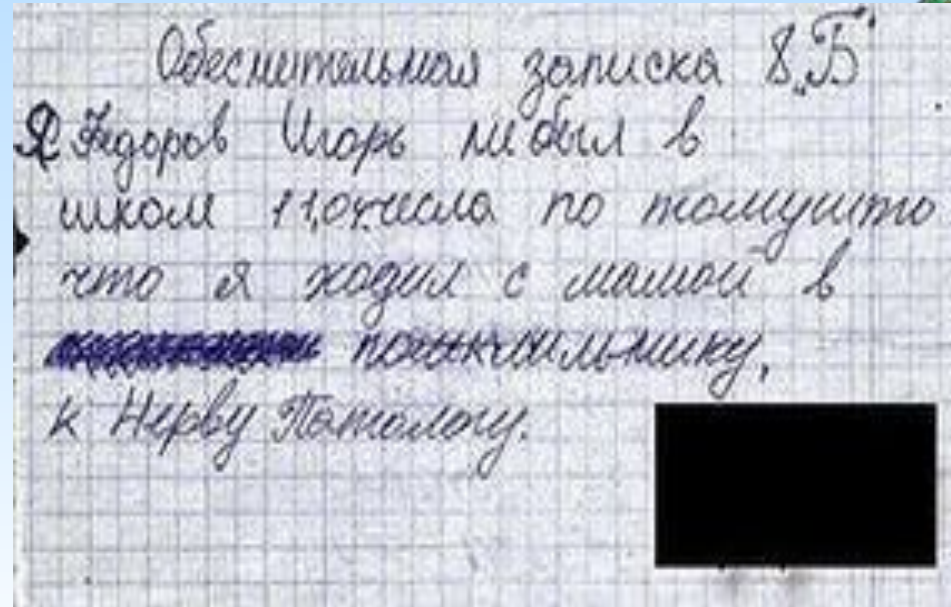 Обеснительная записка 8 „Б"
Я Федоров Игорь небыл в
школе 11,04числа по томушто
что я ходил с мамой в
к Нерву Патологу.